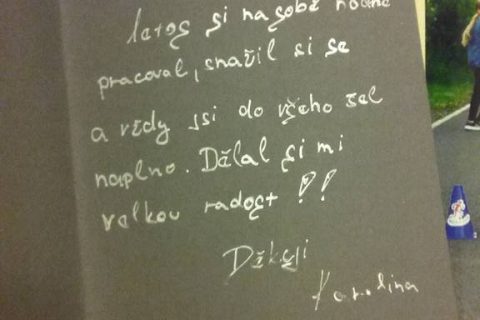 letos si na sobě hodně
pracoval, snažil si se
a vždy jsi do všeho šel
naplno. Dělal si mi
velkou radost !!
Děkuji
Karolina